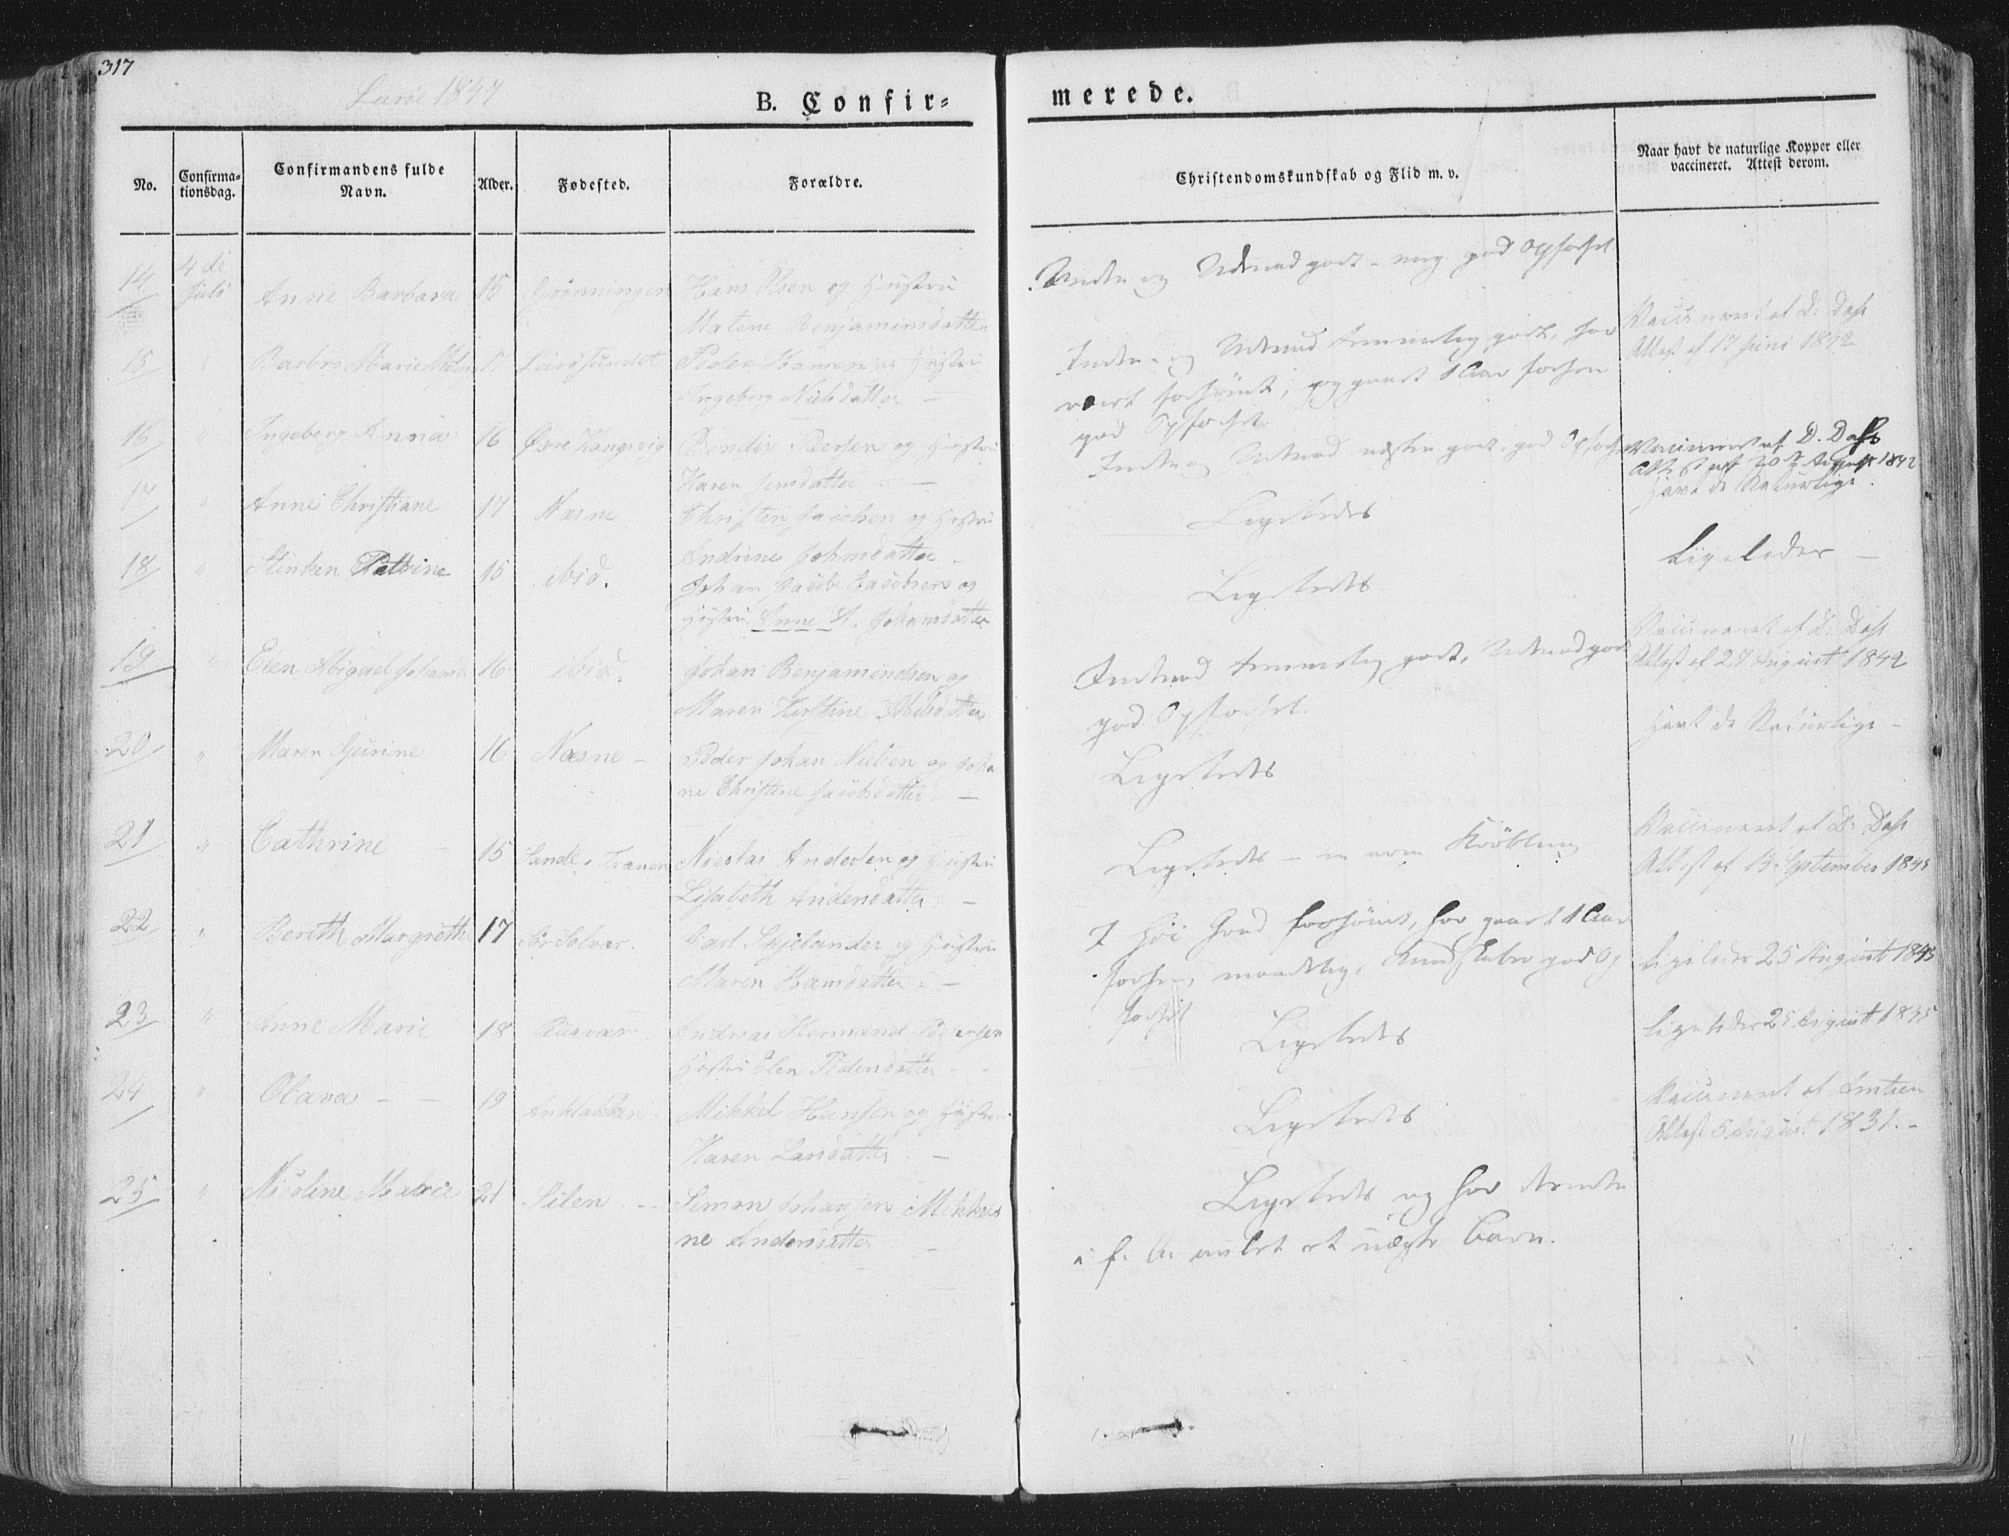 317
Lurøe 1847
B. Confir=
merede.
No.
Confirma-
tionsdag.
Confirmandens fulde
Navn.
Alder.
Fødested.
Forældre.
Christendomskundskab og Flid m. v.
Naar havt de naturlige Kopper eller
vaccineret. Attest derom.
14 4de Juli Anne Barbara 15 Hans Olsen og Hustru
Malene Benjaminsdatter
Inden og Udenad godt - meg god Opførsel
Vaccineret af D: Dahl
Attest af 17 Juni 1842
15 " Barbro Marie 17 Lurøsundet Peder Hansen og Hustru
Ingeborg Nielsdatter —
Inden- og Udenad temmelig godt, har
vært forsømt, og gaaet 1 Aar forhen
god Opførsel.
16 " Ingeborg Anna 16 Øvre Kongsvig Bendix Peersen og Hustru
Karen Jensdatter —
Inden og Udenad næsten godt, god Opførsel
Vaccineret af D. Dahl
Attest af 20de August 1842
17 " Anne Christiane 17 Næsne Christen Jacobsen og Hustru
Andrine Johnsdatter
Ligeledes
Havt de Naturlige.
18 " Stinken Petrine 15 ibid. Johan Jacob Jacobsen og
Hustru Anne A. Johansdatter
Ligeledes
Ligeledes —
19 " Elen Abigael 16 ibid. Johan Benjaminsen og
Maren Kirstine Abelsdatter
Indenad temmelig godt, Udenad godt
god Opførsel.
Vaccineret af D: Dahl
Attest af 27 August 1842
20 " Maren Gurine 16 Næsne - Peder Johan Nielsen og Joha
ne Christine Jacobsdatter —
Ligeledes
Havt de Naturlige -
21 " Cathrine 15 Sande i Trænen Nicolai Andersen og Hustru
Lisabeth Andersdatter -
Ligeledes - en arm Krøbling
Vaccineret af D: Dahl
Attest af 14 September 1845
22 " Bereth Margrethe 17 Sør Solvær. Carl Skjelander og Hustru
Maren Hansdatter. —
I høi Grad forsømt, har gaaet 1 Aar
forhen, maadelig Kundskaber god Op
førsel
Ligeledes 25 August 1845
23 " Anne Marie 18 Husvær Andreas Hermand
Hustru Elen Pedersdatter -
Ligeledes
Ligeledes 25 August 1845
24 " Olava - — 19 Anklakken Mikkel Hansen og Hustru
Karen Larsdatter —
Ligeledes
Vaccineret af
Attest 5 August 1831. -
25 " Nicoline Marie 21 Silen - Simon Johansen Mikkeli
ne Andersdatter —
Ligeledes og har desuden
i f. A. avlet et uægte Barn.